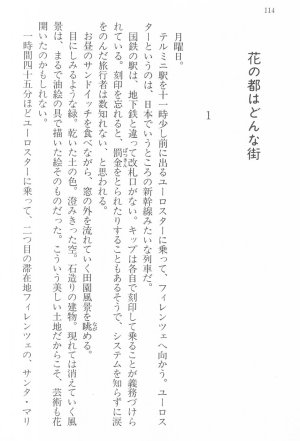 114
花の都はどんな街
1
月曜日。
テルミニ駅を十一時少し前に出るユーロスターに乗って、フィレンツェへ向かう。ユーロス
ターというのは、日本でいうところの新幹線みたいな列車だ。
国鉄の駅は、地下鉄と違って改札口がない。キップは各自で刻印して乗ることが義務づけら
れている。刻印を忘れると、罰金をとられたりすることもあるそうで、システムを知らずに涙
をのんだ旅行者は数知れないのだとか。
お昼のサンドイッチを食べながら、窓の外を流れていく田園風景を眺める。
目にしみるような緑。乾いた土の色。澄みきった空。石造りの建物。現れては消えていく風
景は、まるで油絵の具で描いた絵そのものだった。こういう美しい土地だからこそ、芸術も花
開いたのかもしれない。
一時間四十五分ほどユーロスターに乗って、二つ目の滞在地フィレンツェの、サンタ・マリ